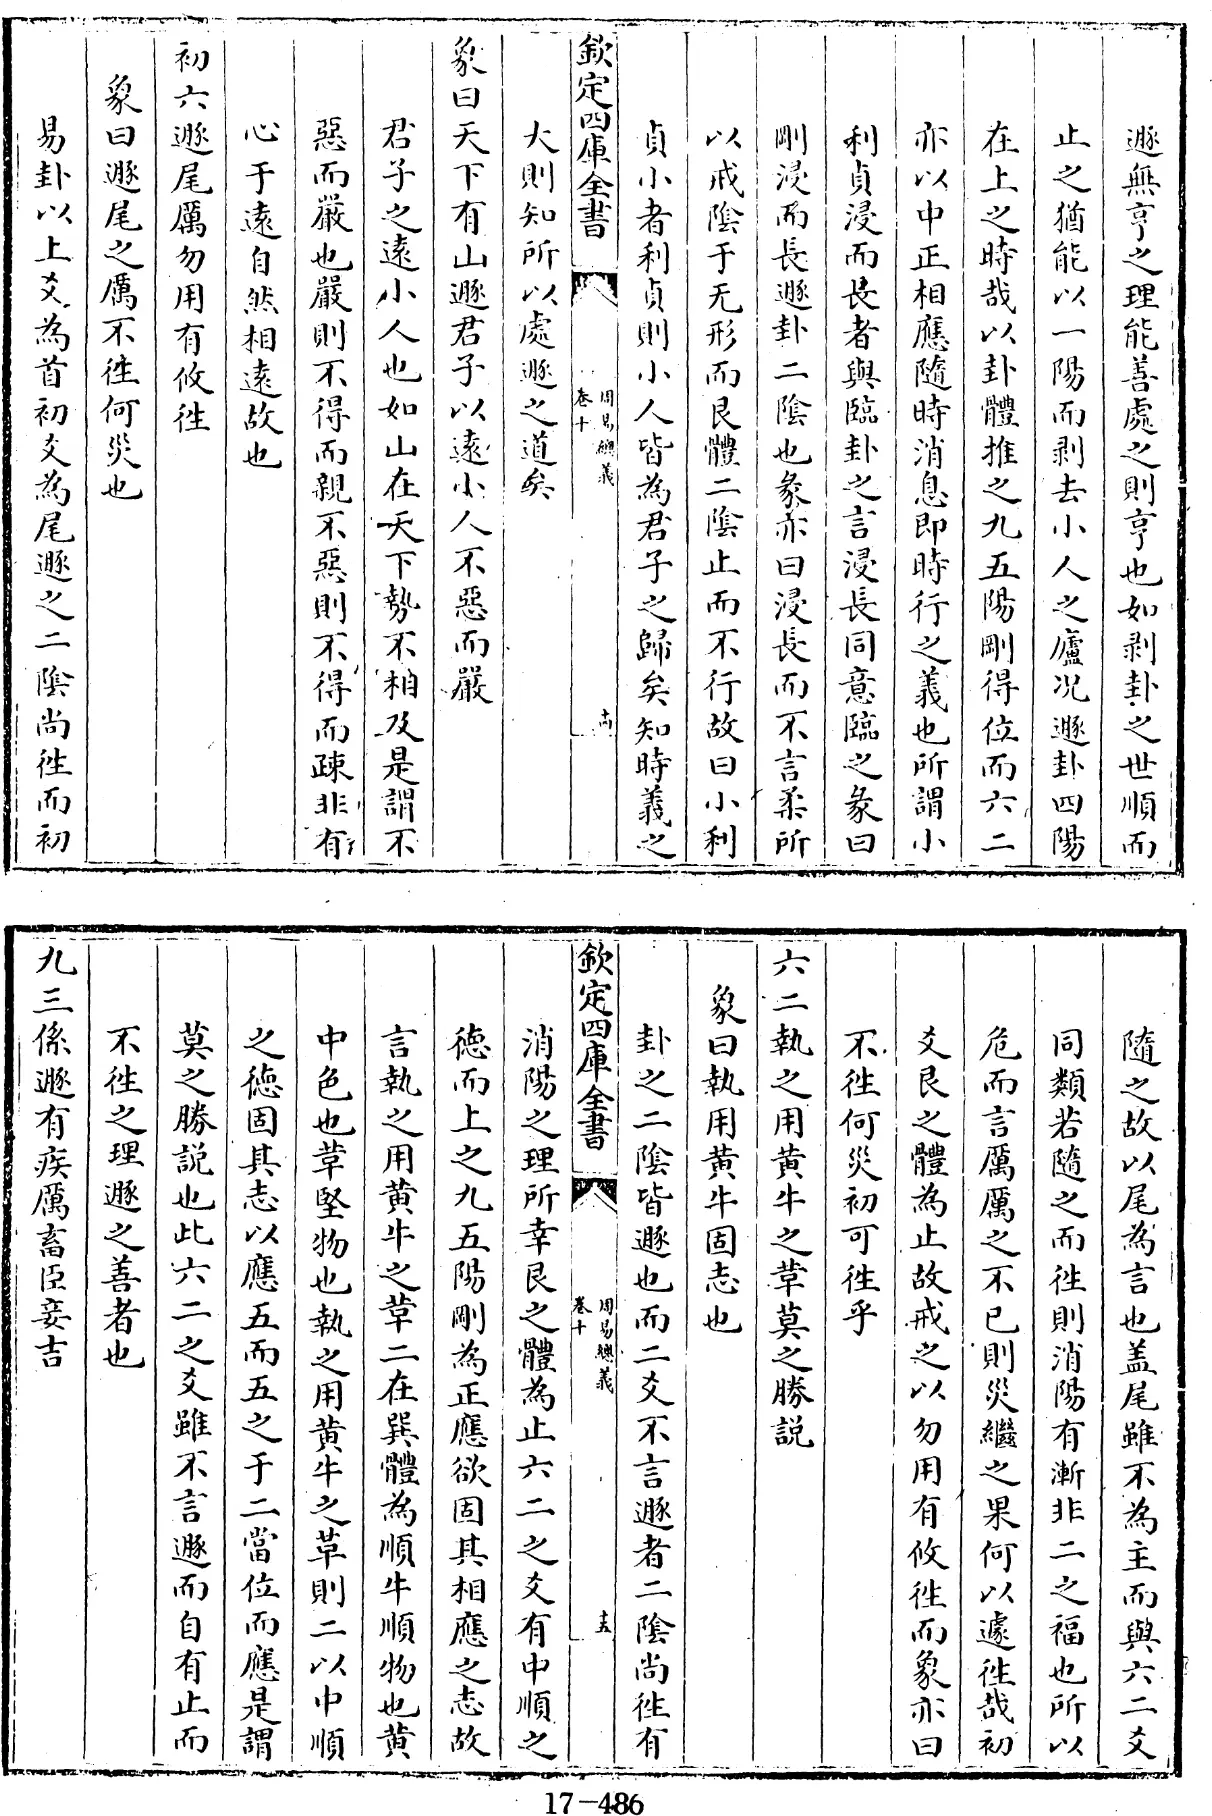 遯無亨之理能善處之則亨也如剥卦之世順而
止之猶能以一陽而剥去小人之廬况遯卦四陽
在上之時哉以卦體推之九五陽剛得位而六二
亦以中正相應隨時消息即時行之義也所謂小
利貞浸而長者與臨卦之言浸長同意臨之彖曰
剛浸而長遯卦二陰也彖亦曰浸長而不言柔所
以戒陰于无形而艮體二陰止而不行故曰小利
貞小者利貞則小人皆為君子之歸矣知時義之
欽定四庫全書
周易總義
卷十
十四
大則知所以處遯之道矣
象曰天下有山遯君子以遠小人不惡而嚴
君子之遠小人也如山在天下勢不相及是謂不
惡而嚴也嚴則不得而親不惡則不得而疎非有
心于遠自然相遠故也
初六遯尾厲勿用有攸往
象曰遯尾之厲不往何災也
易卦以上爻為首初爻為尾遯之二陰尚往而初
隨之故以尾為言也盖尾雖不為主而與六二爻
同類若隨之而往則消陽有漸非二之福也所以
危而言厲厲之不已則災繼之果何以遽往哉初
爻艮之體為止故戒之以勿用有攸往而象亦曰
不往何災初可往乎
六二執之用黄牛之革莫之勝説
象曰執用黄牛固志也
卦之二陰皆遯也而二爻不言遯者二陰尚往有
欽定四庫全書
周易總義
卷十
十五
消陽之理所幸艮之體為止六二之爻有中順之
德而上之九五陽剛為正應欲固其相應之志故
言執之用黄牛之革二在巽體為順牛順物也黄
中色也革堅物也執之用黄牛之革則二以中順
之德固其志以應五而五之于二當位而應是謂
莫之勝説也此六二之爻雖不言遯而自有止而
不往之理遯之善者也
九三係遯有疾厲畜臣妾吉
17-486